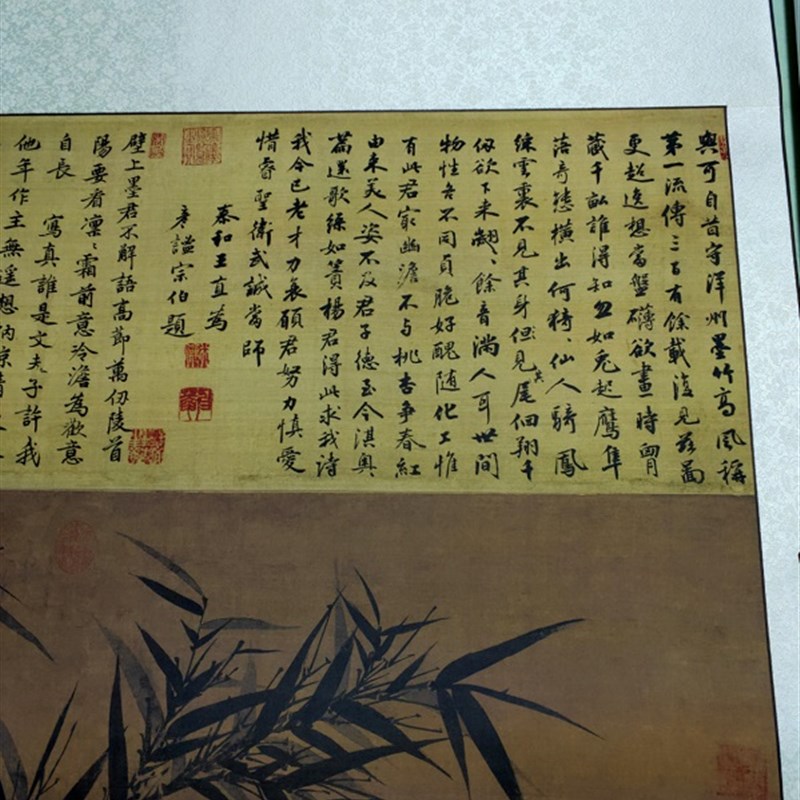 與可自昔守洋州墨竹高風稱
第一流傳三百有餘載復見茲圖
更超逸想當盤礴欲畫時胷
藏千畝誰得知忽如兎起鷹隼
落奇態橫出何猗猗仙人騎鳳
綵雲裏不見其身但見其尾回翔千
仞欲下来翽翽餘音滿人耳世間
物性各不同貞脆好醜随化工惟
有此君寂幽澹不与桃杏争春紅
由来美人姿不及君子德至今淇奥
篇還歌綠如簀楊君得此求我詩
我今已老才力衰願君努力慎愛
惜睿聖衛武誠當師
泰和王直為
彥謐宗伯題
壁上墨君不解語高節萬仞陵首
陽要看凛凛霜前意冷澹為歡意
自長 寫真誰是文夫子許我
他年作主無